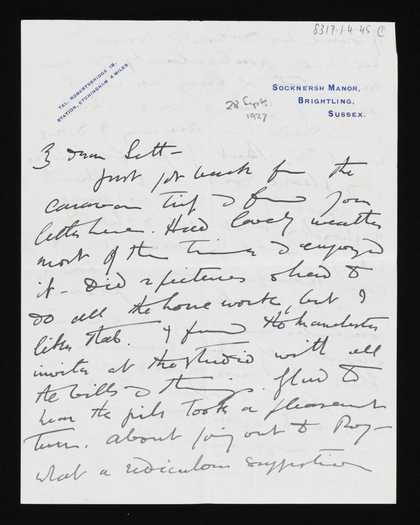 8317.1.4.45 C
TEL. ROBERTSBRIDGE 18.
STATION, ETCHINGHAM 4 MILES.
SOCKNERSH MANOR,
BRIGHTLING,
SUSSEX.
28 Sept.
1927
dear Sett -
Just got back from the
caravan trip & found your
letter here. Had lovely weather
most of the time & enjoyed
it - Did 2 pictures & had to
do all the house work, but I
likes that. I found the Manchester
invites at the studio with all
the bills & things. Glad to
hear the pils took a pleasant
turn. About going out to Roy -
what a ridiculous suggestion